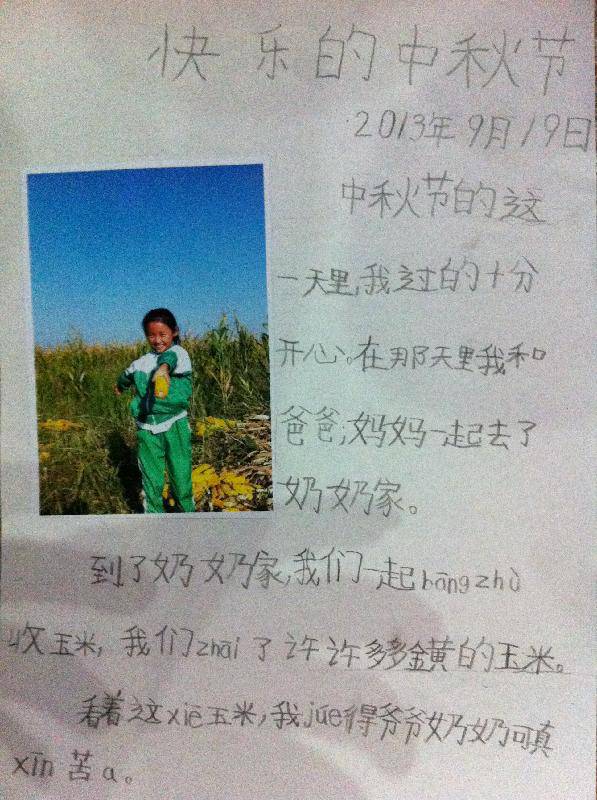 快乐的中秋节
2013年9月19日
中秋节的这
一天里,我过的十分
开心。在那天里我和
爸爸,妈妈一起去了
奶奶家。
到了奶奶家,我们一起bāngzhù
收玉米,我们zhāi了许许多多金黄的玉米。
看着这xiē玉米,我jüe得爷爷奶奶可真
xīn苦a。